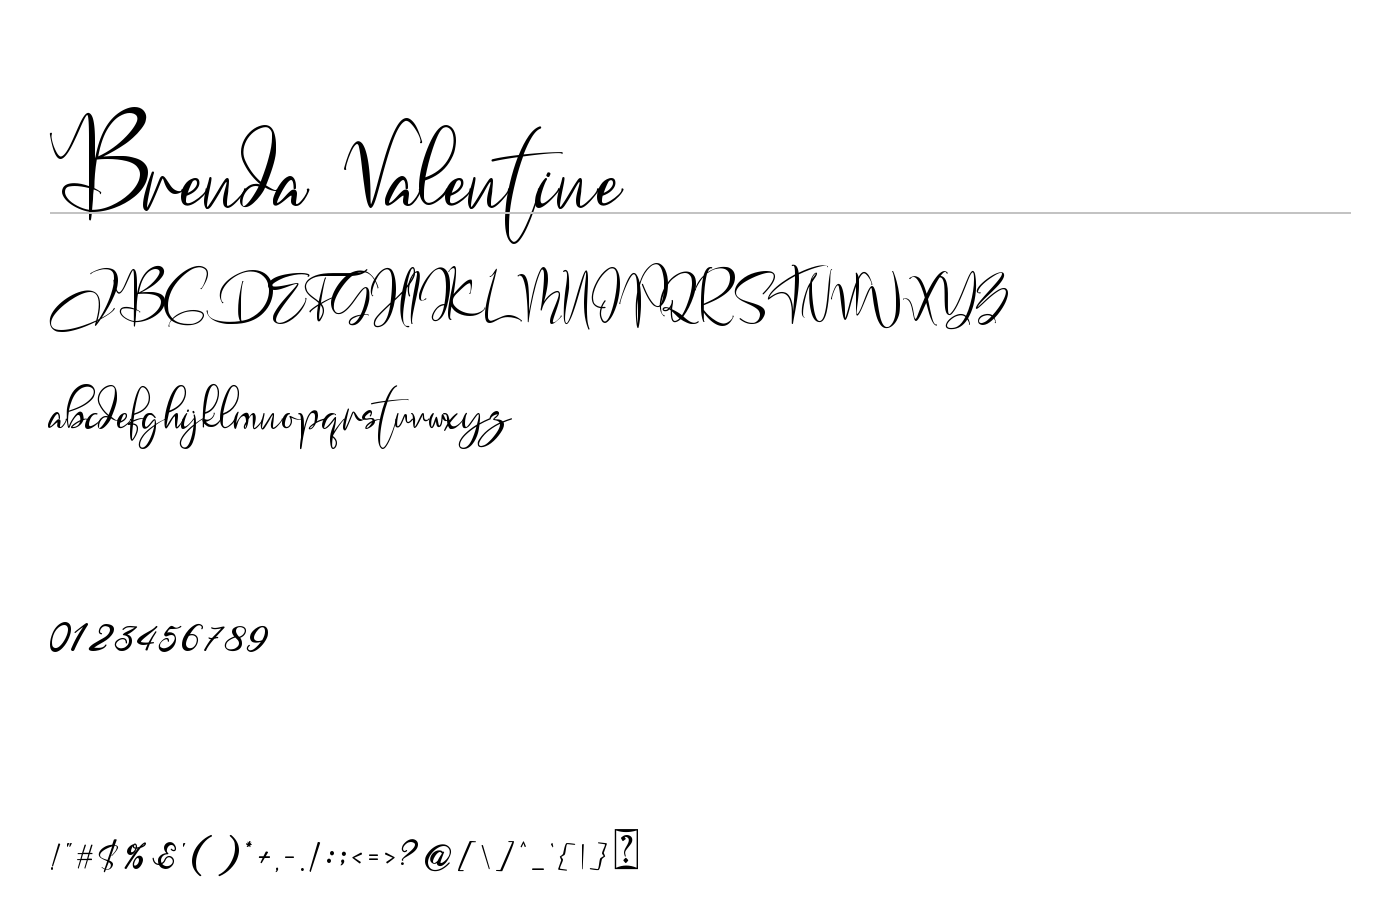 Brenda Valentine
ABCDEFGHIJKLMNOPQRSTUVWXYZ
abcdefghijklmnopqrstuvwxyz
0123456789
!"#$%&'()*+,-./:;<=>?@[\]^_`{|}